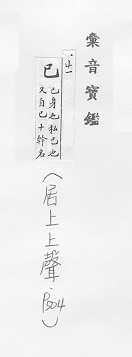 彙音寶鑑
己
己身也私己也
又自己十幹名
(居上上聲.P504)